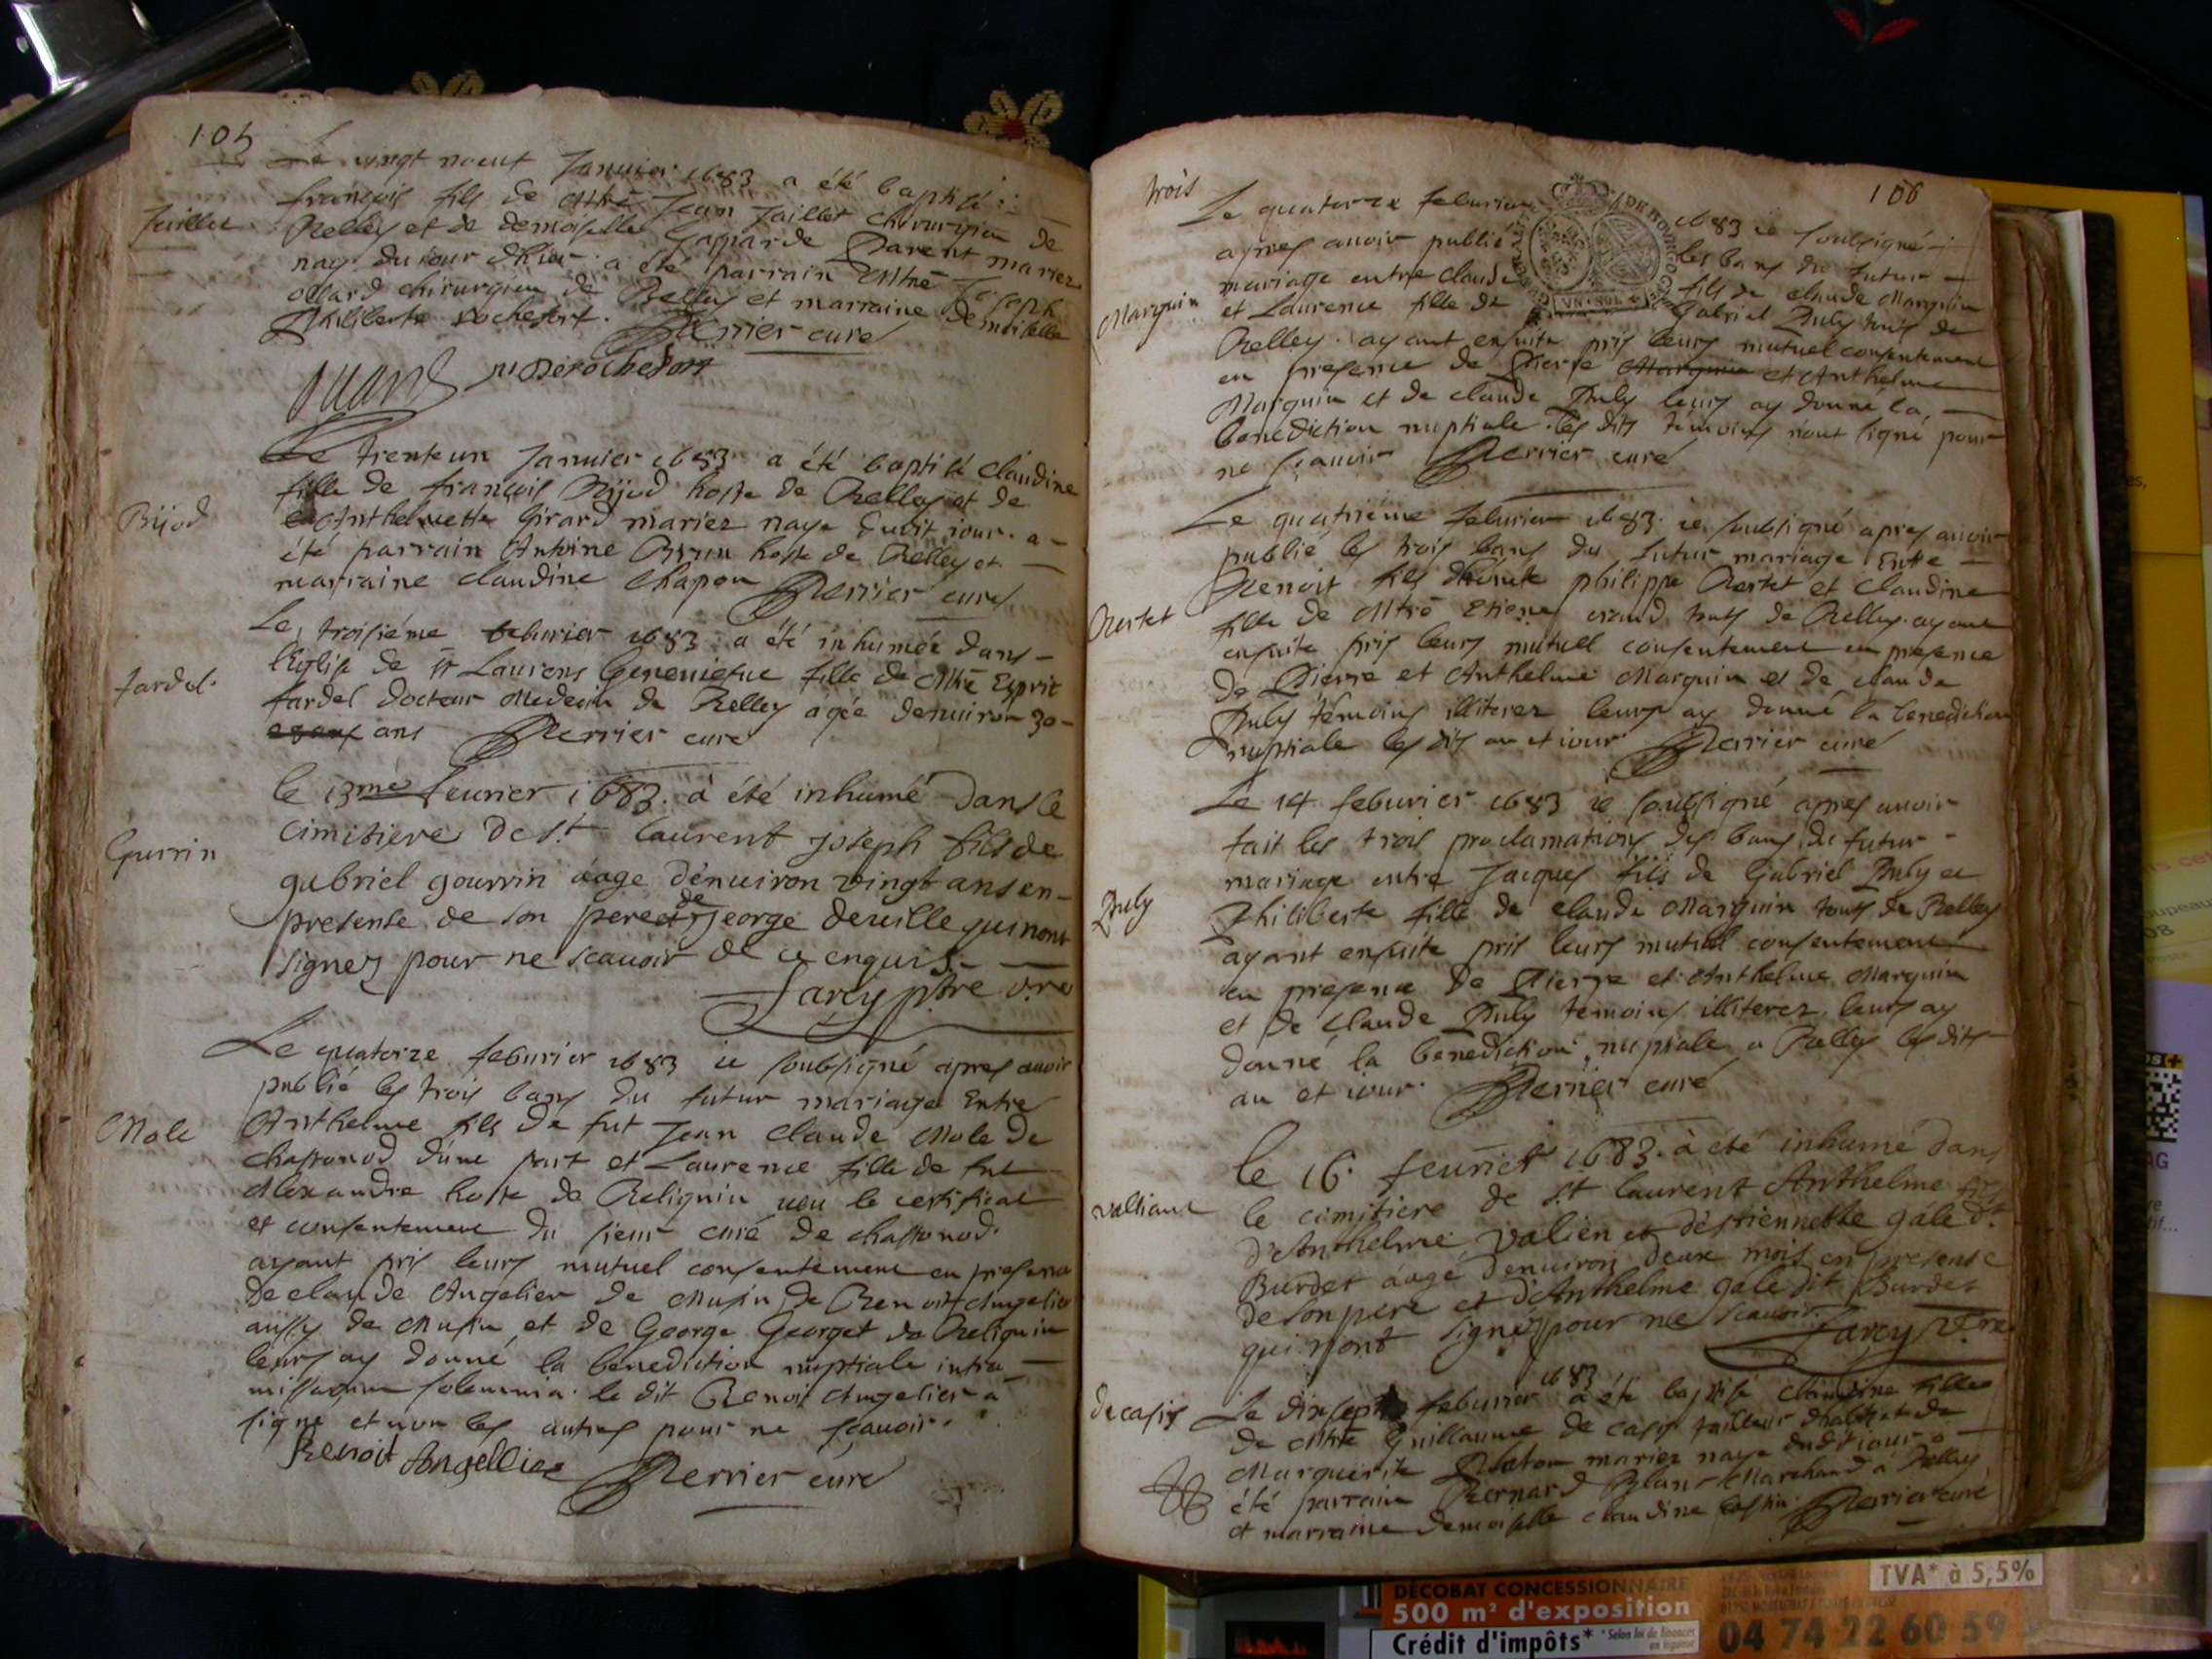 105
Le vingt noeuf Januier 1683 a été baptisé
françois fils de Mtre Jean Jaillet chirurgien de
Jaillet
Belley et de demoiselle Gasparde Parent mariez
nay du iour dhier a été parrain Mtre Joseph
Ollard chirurgien de Belley et marraine demoiselle
Philiberte Rochefort. Perrier curé
m Derochefort
Le trente un Januier 1683 a été baptisé Claudine
fille de françois Bijod hoste de Belley et de
Bijod
Anthelmette Girard mariez naye huit iour a
été parrain Antoine hoste de Belley et
marraine claudine Chapon Perrier curé
Le troisiéme feburier 1683 a été inhumée dans
l'Eglise de st Laurens Geneuiefue fille de Mtre Esprit
fardel.
fardel docteur Medecin de Belley agée denuiron 30
ans Perrier curé
le 13me feurier 1683. à été inhumé dans le
cimitiere de st laurent joseph fils de
Gurrin
gabriel gourrin áage dénuiron vingt ans en
presente de son pere de george deuille qui nont
signez pour ne scauoir de ce enquis
Larcy ptre vre
Le quatorze feburier 1683 ie soubsigné apres auoir
publié les trois bans du futur mariage Entre
Mole
Anthelme fils de fut Jean Claude Mole de
chassonod dune part et Laurence fille de fut
Alexandre hoste de Beliguin ueu le certificat
et consentement du sieur curé de chassonod
ayant pris leurs mutuel consentement en presence
de claude Angelier de Musin de Benoit Angelier
aussy de Musin et de George Georget de Beliguin
leurs ay donné la benediction nuptiale intra
missarum solemnia. le dit Benoit Angelier a
signé et non les autres pour ne scauoir.
Benoit Angellier Perrier curé
106
trois
Le quatorze feburier 1683 ie soubsigné
apres auoir publié les bans du futur
mariage entre claude fils de claude Marguin
Marguin
et Laurence fille de Gabriel Puly touts de
Belley. ayant ensuite pris leurs mutuel consentement
en presence de Pierre Marguin et Anthelme
Marguin et de claude Puly leurs ay donné la
benediction nuptiale. les dits témoins n'ont signé pour
ne sçauoir Perrier curé
Le quatriéme feburier 1683. ie soubsigné apres auoir
publié les trois bans du futur mariage Entre
Benoit fils dhonete philippe Bertet et Claudine
Bertet
fille de Mtre Etiene touts de Belley. ayant
ensuite pris leurs mutuell consentement en presence
de Pierre et Anthelme Marguin et de claude
Puly témoins illiterez leurs ay donné la benediction
nuptiale les dits an et iour Perrier curé
Le 14 feburier 1683 ie soubsigné apres auoir
fait les trois proclamations des bans du futur
mariage entre Jacques fils de Gabriel Puly et
Puly
Philiberte fille de claude Marguin touts de Belley
ayant ensuite pris leurs mutuel consentement
en presence de Pierre et Anthelme Marguin
et de Claude Puly temoins illiterez leurs ay
donné la benediction nuptiale a Belley les dits
an et iour. Perrier curé
le 16. feurier 1683. à été inhumé dans
le cimitiere de st laurent Anthelme fils
valliant
d'Anthelme valien et d'estiennette gale dt
Burdet áagé denuiron deux mois en presente
de son pere et d'Anthelme gale dit Burdet
qui n'ont signez pour ne scauoir. Larcy vre
1683
decasis
Le dixsept feburier a été baptisé Claudine fille
de Mtre Guillaume de casis tailleur dhabit et de
Marguerite Platon mariez naye dudit iour a
été parrain Bernard Marchand a Belley
et marraine demoiselle claudine Perrier curé
DÉCOBAT CONCESSIONNAIRE
500 m² d'exposition
Crédit d'impôts*
TVA* à 5,5%
04 74 22 60 59